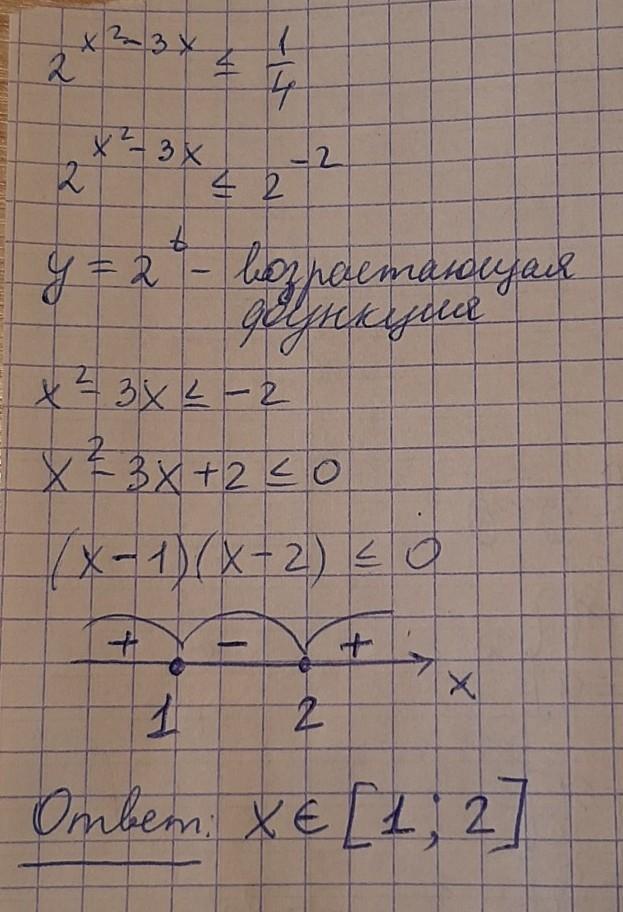 2^(x²-3x) ≤ 1/4
2^(x²-3x) ≤ 2^(-2)
y = 2^t - возрастающая
функция
x²-3x ≤ -2
x²-3x+2 ≤ 0
(x-1)(x-2) ≤ 0
+ - +
x
1 2
Ответ: x ∈ [1; 2]